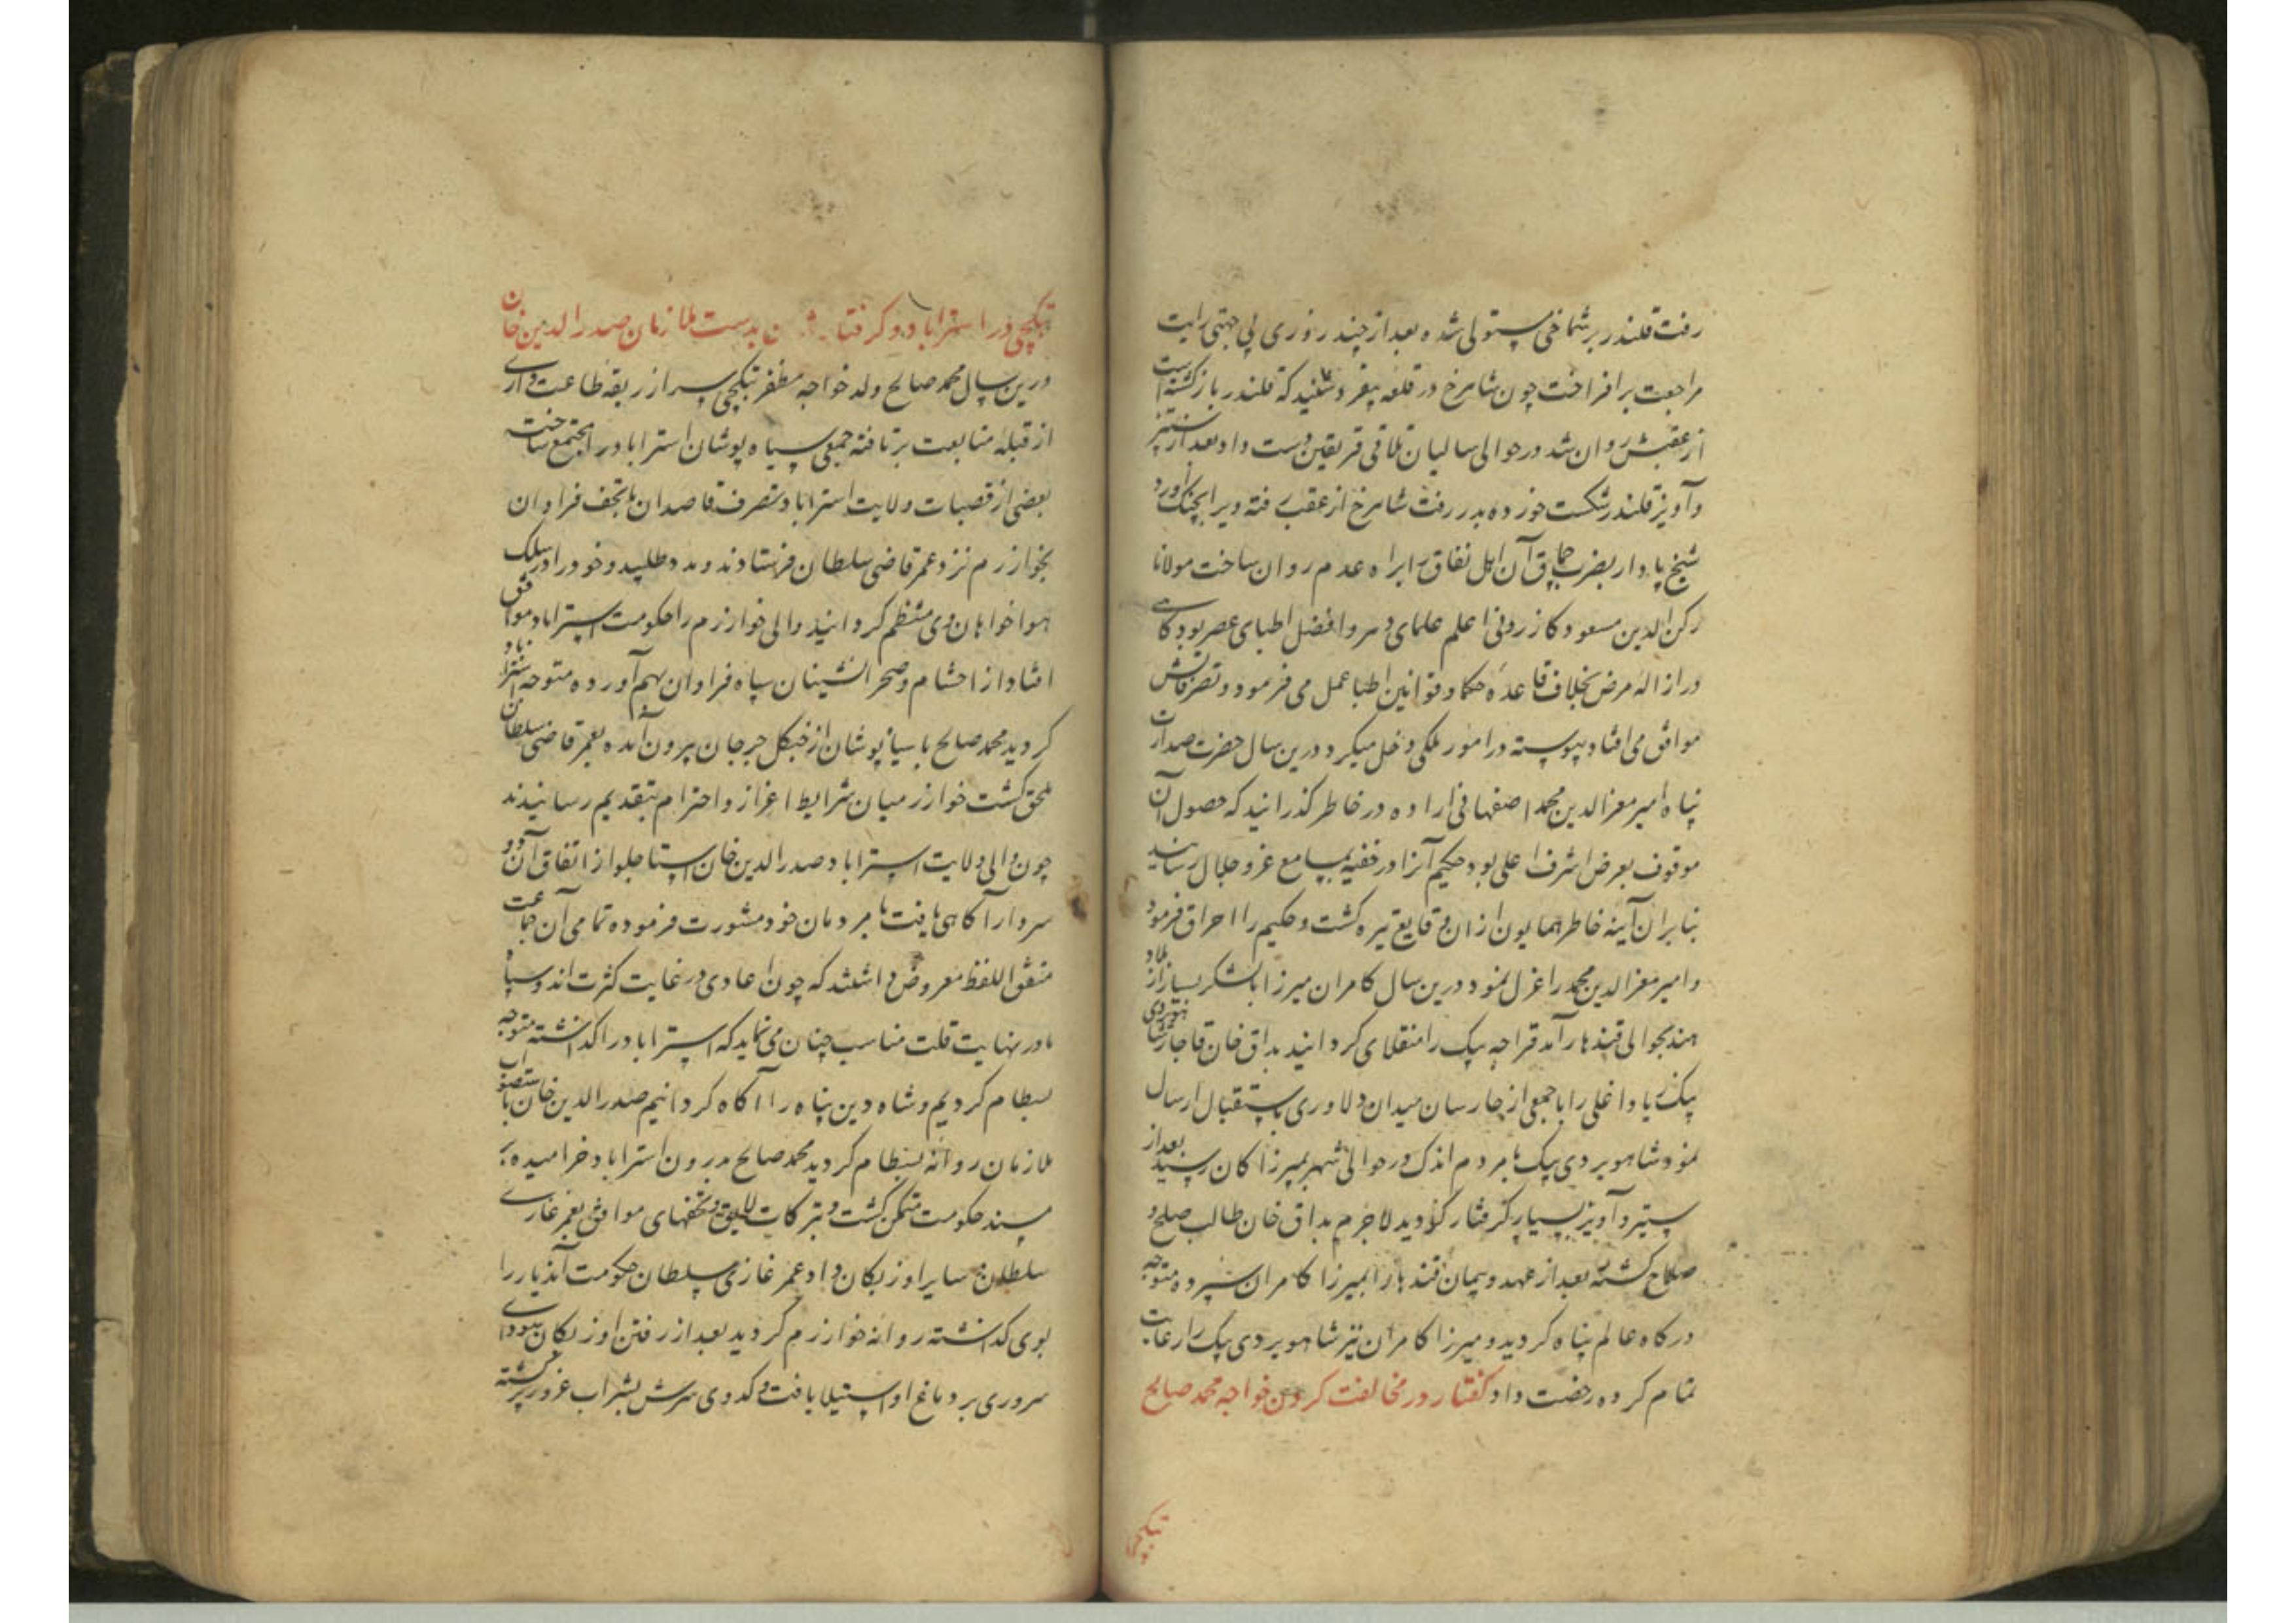 رفت قلندر بر شماخی مستولی شده بعد از چند روزی بی جهتی رایت
مراجعت برافراخت چون شاهرخ در قلعه بیغرد شنید که قلندر باز کشته است
از عقبش روان شد در حوالی سالیان تلاقی فریقین دست داد بعد از ستیز
و آویز قلندر شکست خورده بدر رفت شاهرخ از عقب رفته ویرا بچنک آورد
شیخ پادار بضرب چماق آن اهل نفاق را براه عدم روان ساخت مولانا
رکن الدین مسعود کازرونی اعلم علمای دهر و افضل اطبای عصر بود کاهی
در ازاله مرض بخلاف قاعده حکما و قوانین اطبا عمل می فرمود و تصرفاتش
موافق می افتاد پیوسته در امور ملکی دخل میکرد درین سال حضرت صدارت
پناه امیر معزالدین محمد اصفهانی اراده در خاطر کذرانید که حصول آن
موقوف بعرض اشرف اعلی بود حکیم آنرا در خفیه بمسامع عز و جلال رسانید
بنابران آینه خاطر همایون ازان وقایع تیره کشت و حکیم را احراق فرمود
و امیر معزالدین محمد را عزل نمود درین سال کامران میرزا با لشکر بسیار از بلاد
هند بحوالی قندهار آمد قراجه بیک را منقلای کردانید بداق خان قاجار شاهویردی
بیک زیاد اغلی را با جمعی از چارسان میدان دلاوری باستقبال ارسال
نمود شاهویردی بیک با مردم اندک در حوالی شهر بمیرزا کامران رسید بعد از
ستیز و آویز بسیار کرفتار کردید لاجرم بداق خان طالب صلح و
صلاح کشته بعد از عهد و پیمان قندهار را بمیرزا کامران سپرده متوجه
درکاه عالم پناه کردید و میرزا کامران نیز شاهویردی بیک را رعایت
تمام کرده رخصت داد کفتار در مخالفت کردن خواجه محمد صالح
بتکچی
بتکچی در استراباد و کرفتار شدن بدست ملازمان صدرالدین خان
درین سال محمد صالح ولد خواجه مظفر بتکچی سر از ربقه طاعت داری
از قبله متابعت برتافته جمعی سیاه پوشان استراباد را مجتمع ساخت
بعضی از قصبات ولایت استراباد بتصرف قاصدان با تحف فراوان
بخوارزم نزد عمر قاضی سلطان فرستادند و مدد طلبید و خود را در سلک
هواخواهان وی منتظم کردانید والی خوارزم را حکومت استراباد موافق
افتاد از احشام و صحرانشینان سپاه فراوان بهم آورده متوجه استراباد
کردید محمد صالح با سیاه پوشان از جنکل جرجان بیرون آمده بعمر قاضی سلطان
ملحق کشت خوارزمیان شرایط اعزاز و احترام بتقدیم رسانیدند
چون والی ولایت استراباد صدرالدین خان استاجلو از اتفاق آن دو
سردار آکاهی یافت با مردمان خود مشورت فرموده تمامی آن جماعت
متفق اللفظ معروض داشتند که چون اعادی در غایت کثرت اند و سپاه
ما در نهایت قلت مناسب چنان می نماید که استراباد را کذاشته متوجه
بسطام کردیم و شاه دین پناه را آکاه کردانیم صدرالدین خان باستصواب
ملازمان روانه بسطام کردید محمد صالح درون استراباد خرامیده بر
مسند حکومت متمکن کشت و تبرکات لایق و تحفهای موافق بعمر غازی
سلطان و سایر اوزبکان داد عمر غازی سلطان حکومت آندیار را
بوی کذاشته روانه خوارزم کردید بعد از رفتن اوزبکان سودای
سروری بر دماغ او استیلا یافت و کدوی سرش بشراب غرور پر کشته